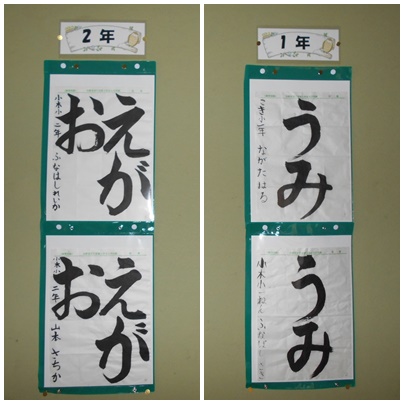 2年
えが
お
小木小二年 ふなはしれいか
えが
お
小木小二年 山本 さちか
1年
うみ
年 ながた
うみ
小木小一ねん